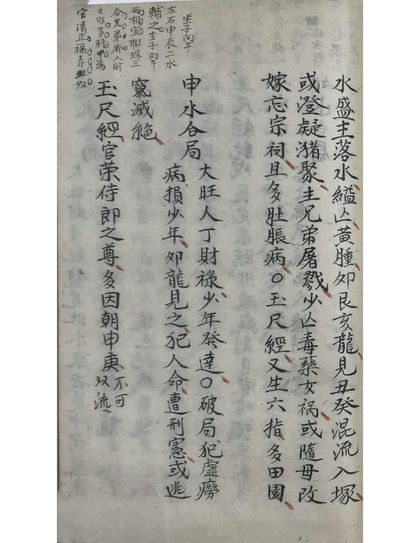 水盛主落水縊亡黃腫如艮亥龍見丑癸混流入塚
或澄凝猪聚主兄弟屠戮少亡毒藥女祸或隨母改
嫁忘宗祠且多肚脹病〇玉尺經又生六指多田園
申水合局
大旺人丁財祿少年發達〇破局犯虛癆
病損少年如龍見之犯人命遭刑憲或逃
竄滅絕
玉尺經官荣侍郎之尊多因朝申庚不可
双流
坐子向午
左右申辰二水
輔之坐子向午
兩相宜聯珠三
合兄弟齊人財
大旺多
官清正福壽